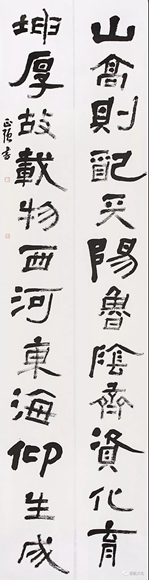 山高則配天陽魯陰齊資化育
坤厚故載物西河東海仰生成